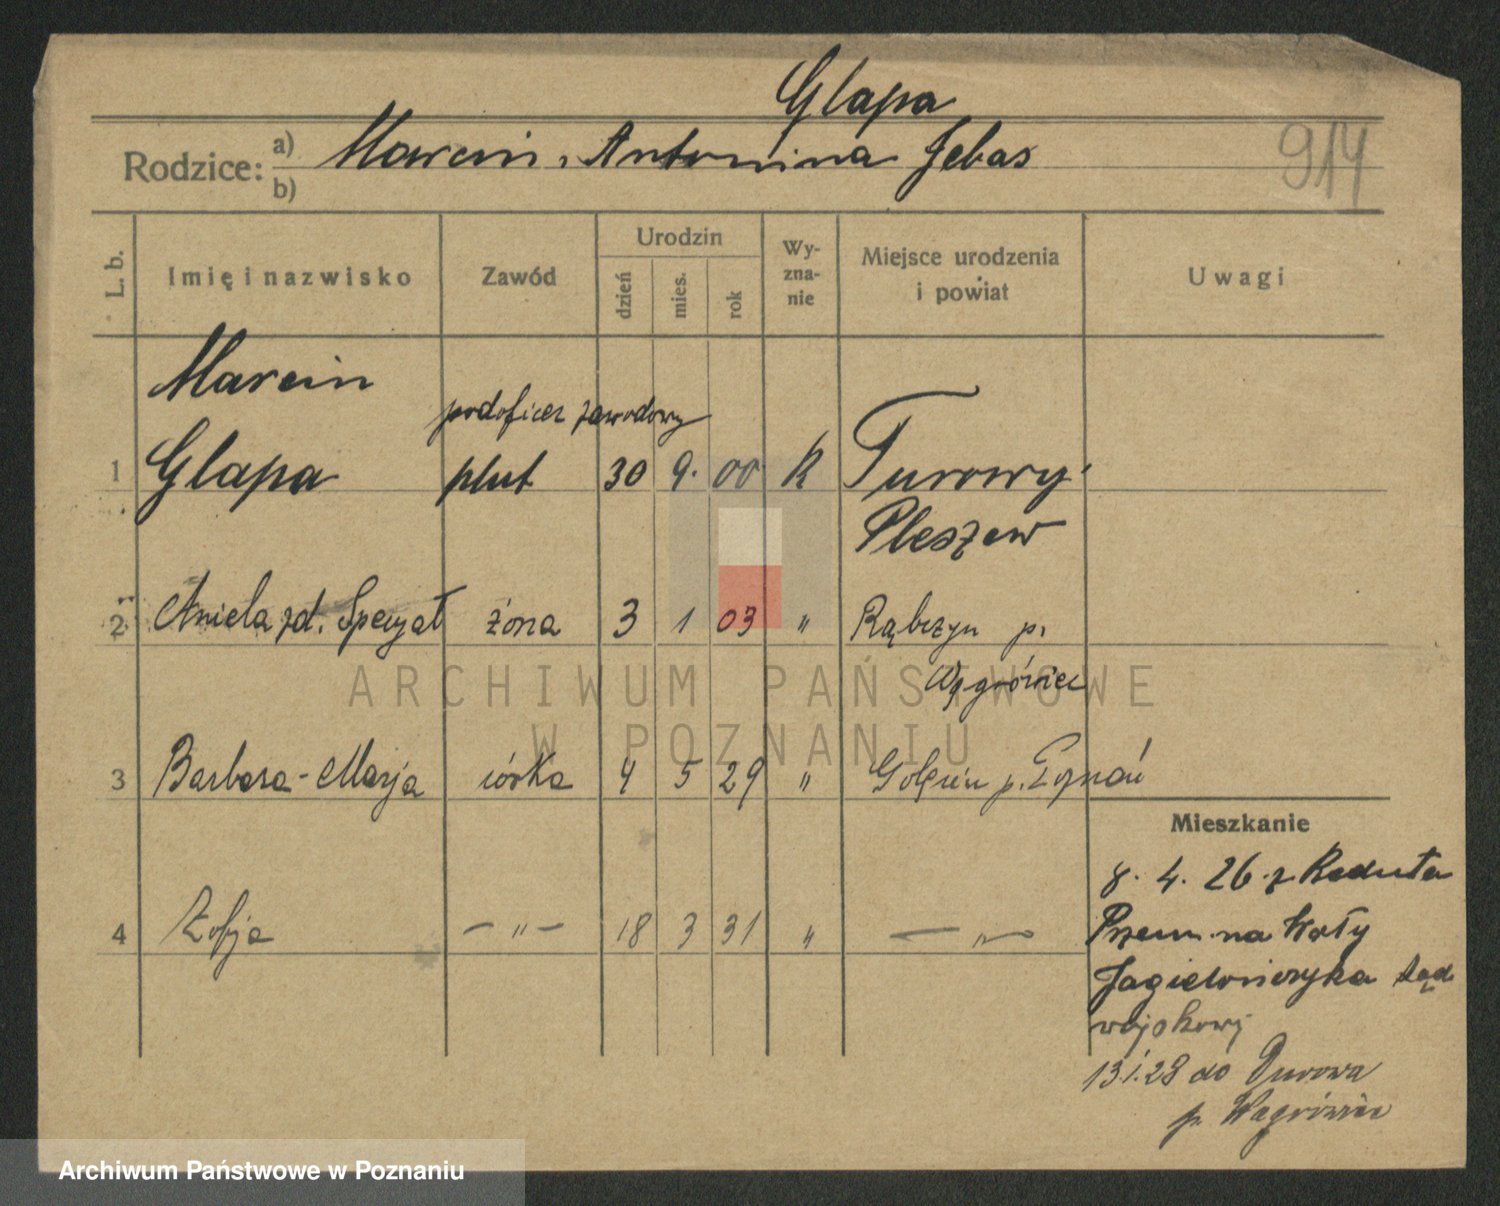 Glapa
Rodzice: a) Marcin, Antonina Jebas
b)
914
L. b. Imię i nazwisko Zawód Urodzin dzień mies. rok Wy-zna-nie Miejsce urodzenia i powiat Uwagi
Marcin
podoficer zawodowy
1 Glapa plut 30 9. 00 R Turowy
Pleszew
2 Aniela zd. Specyał żona 3 1 03 " Rąbczyn p.
Wągrówiec
3 Barbara-Marja córka 4 5 29 " Golęcin p. Poznań
4 Zofja — " — 18 3 31 " — " —
Mieszkanie
8. 4. 26. z Reduta
Przem. na Wały
Jagielończyka Sąd
wojskowy
13.1.28 do Durowa
p. Wągrówiec
ARCHIWUM PAŃSTWOWE
W POZNANIU
Archiwum Państwowe w Poznaniu